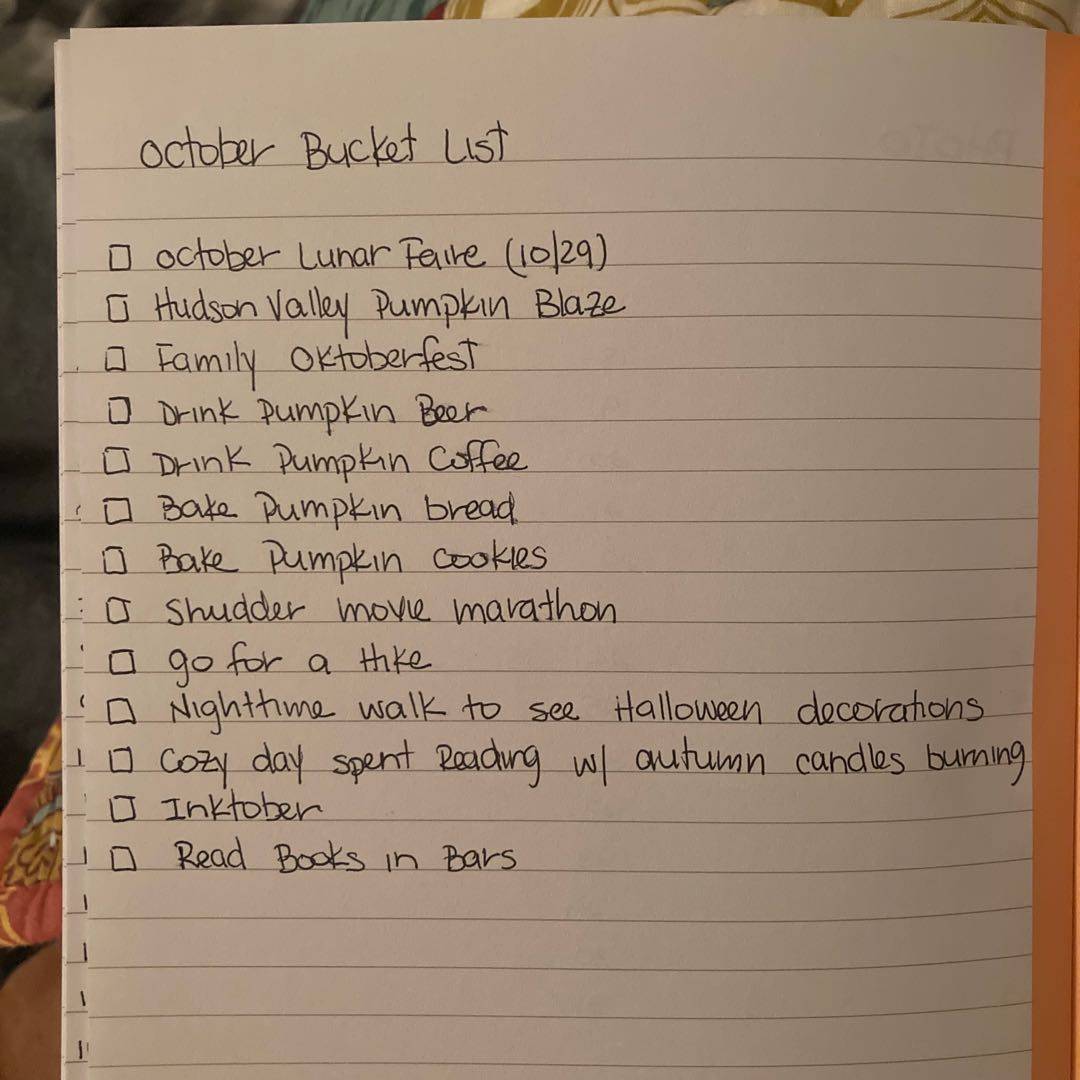 October Bucket List
October Lunar Faire (10/29)
Hudson Valley Pumpkin Blaze
Family Oktoberfest
Drink Pumpkin Beer
Drink Pumpkin Coffee
Bake Pumpkin bread
Bake Pumpkin cookies
Shudder movie marathon
go for a Hike
Nighttime walk to see Halloween decorations
Cozy day spent Reading w/ autumn candles burning
Inktober
Read Books in Bars